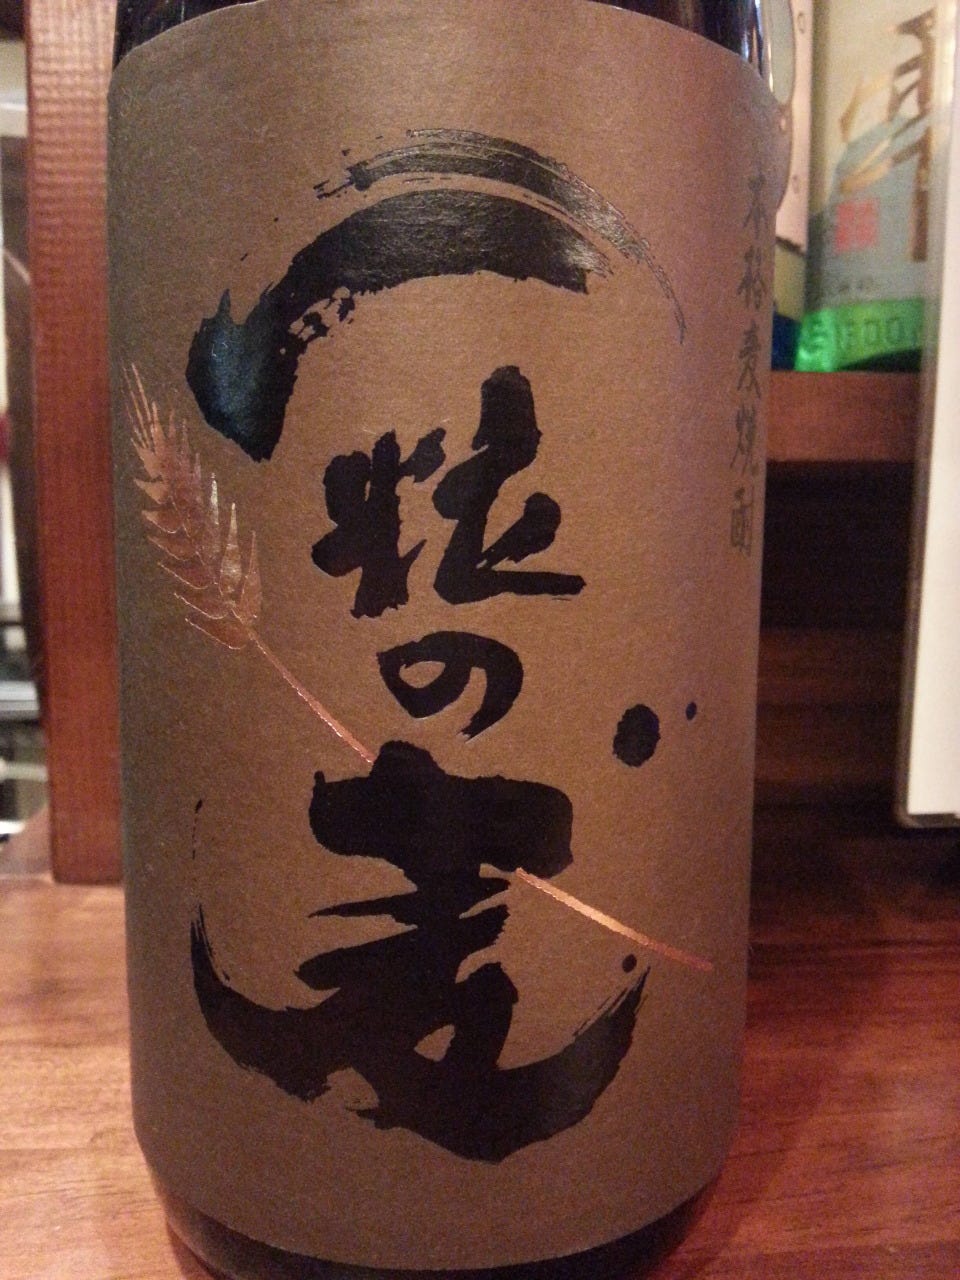 本格麦焼酎
一粒の麦